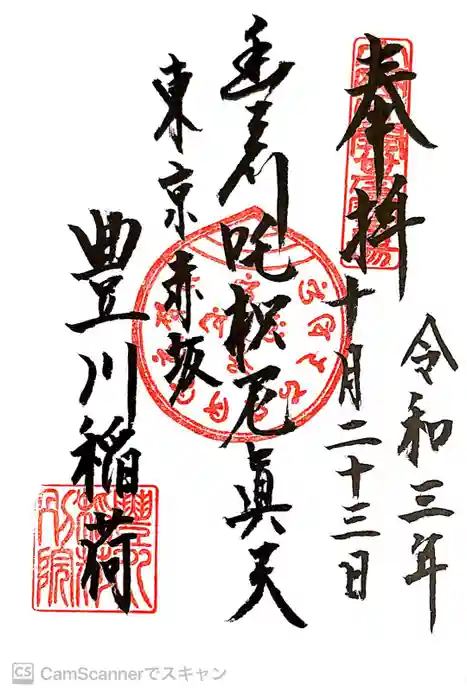 奉拝
令和三年
十月二十三日
吒枳尼真天
東京赤坂
豊川稲荷
CamScannerでスキャン